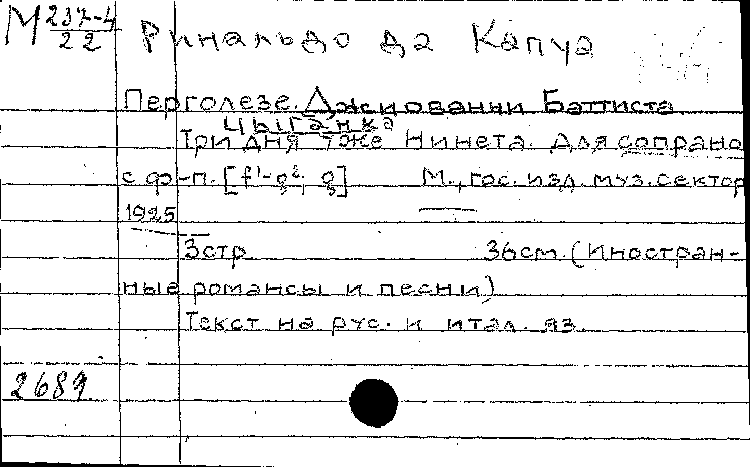 М 237-4
22
Ринальдо да Капуа
Перголезе. Джиованни Баттиста
Цыганка
Три дня тоже Нинета. Для сопрано
с ф-п. [f¹-g²; g] М., гос. изд. муз. сектор
1925
3стр 36см. (Иностран-
ные романсы и песни)
Текст на рус. и итал. яз.
2689.